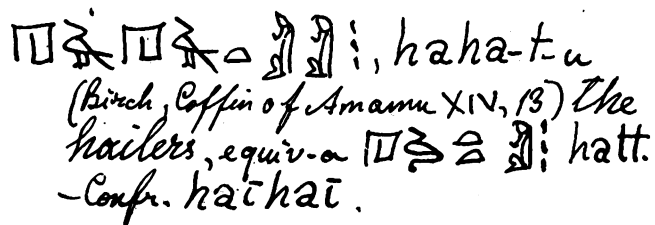 , haha-t-u
(Birch, Coffin of Amamu XIV, 13) The
hailers, equiv-a hatt.
-Confr. haīhaī.